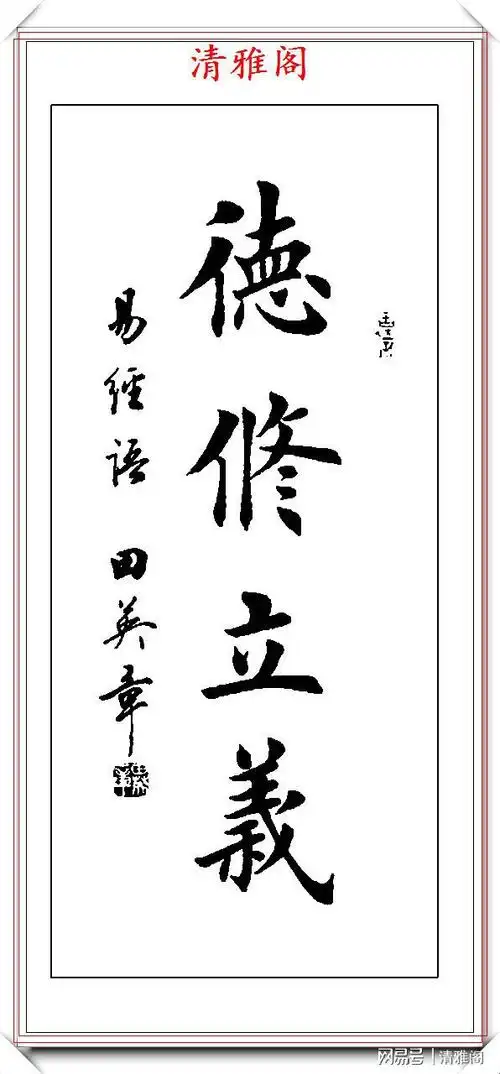 清雅阁
德修立義
易經語 田英章
网易号|清雅阁